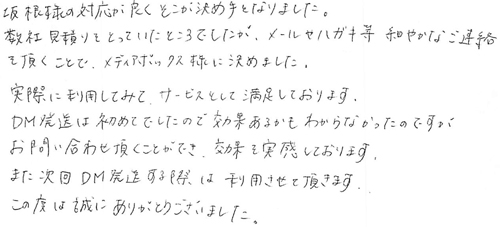 坂根様の対応が良くそこが決め手となりました。
数社見積りをとっていたところでしたが、メールやハガキ等 和やかなご連絡
を頂くことで、メディアボックス様に決めました。
実際に利用してみて、サービスとして満足しております。
DM発送は初めてでしたので効果あるかもわからなかったのですが
お問い合わせ頂くことができ、効果を実感しております。
また次回DM発送する際は利用させて頂きます。
この度は誠にありがとうございました。